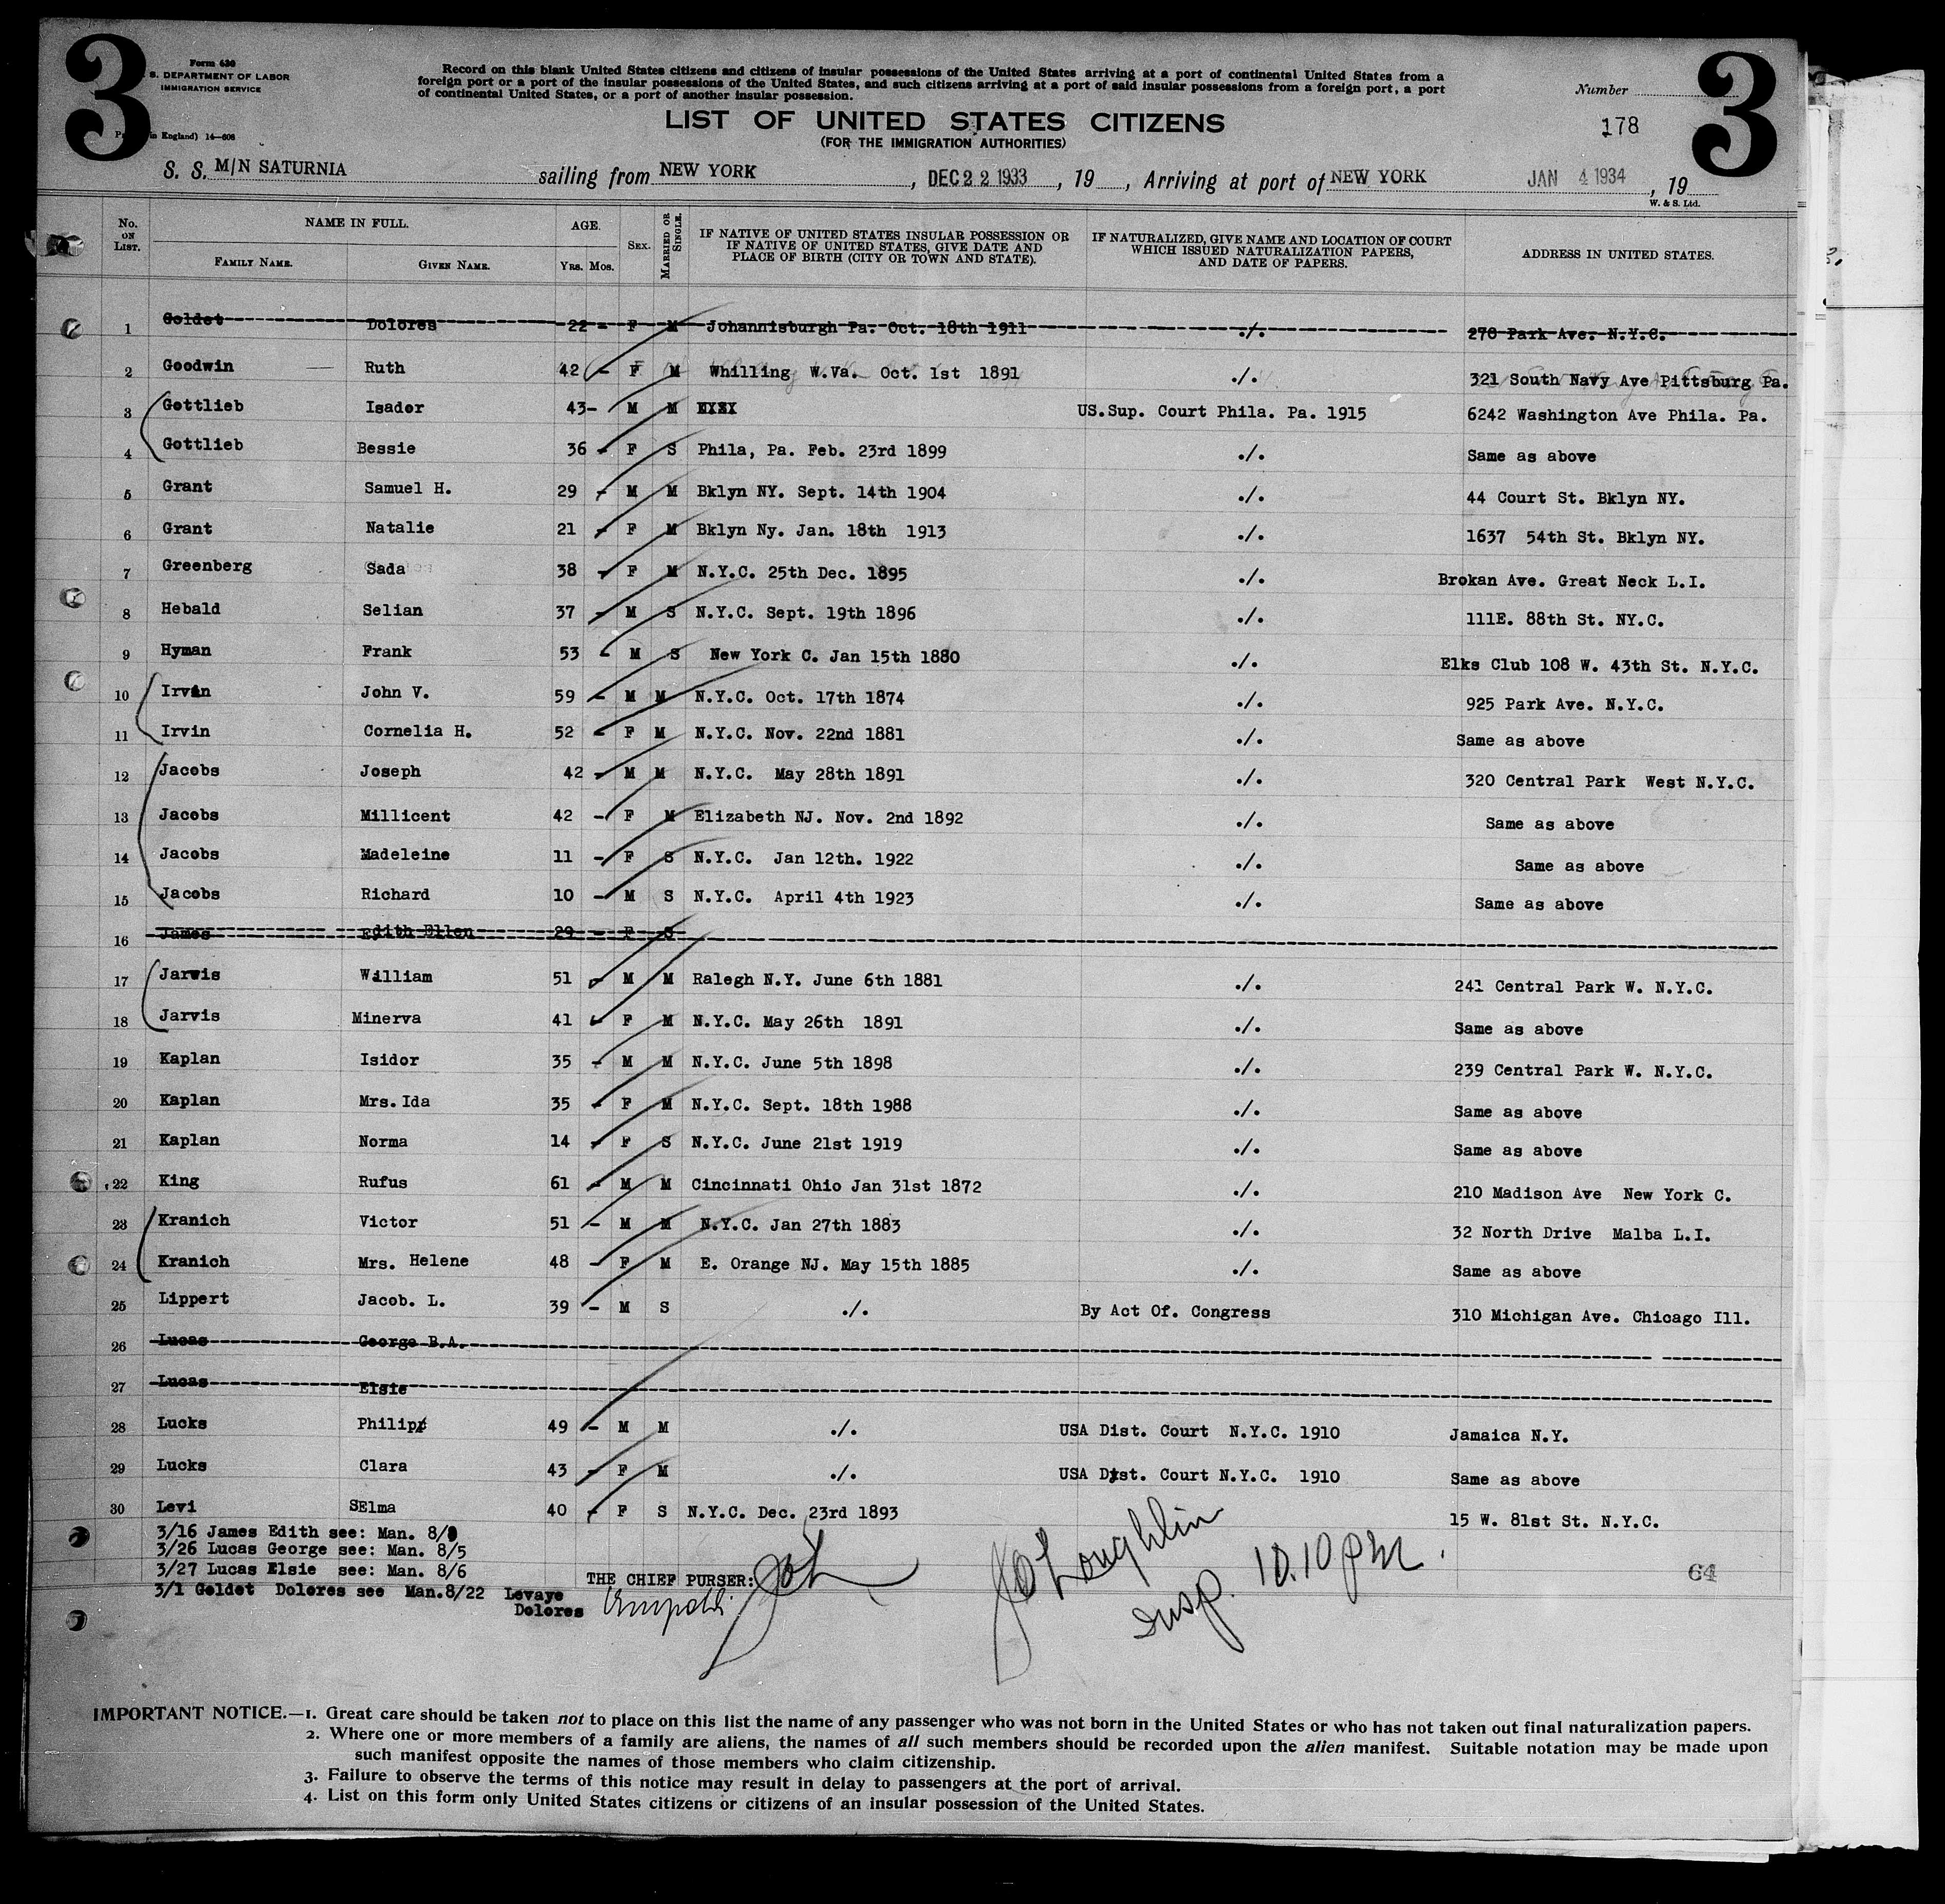 3
3
Form 630
S. DEPARTMENT OF LABOR
IMMIGRATION SERVICE
in England) 14—608
Record on this blank United States citizens and citizens of insular possessions of the United States arriving at a port of continental United States from a
foreign port or a port of the insular possessions of the United States, and such citizens arriving at a port of said insular possessions from a foreign port, a port
of continental United States, or a port of another insular possession.
Number
178
LIST OF UNITED STATES CITIZENS
(FOR THE IMMIGRATION AUTHORITIES)
S. S. M/N SATURNIA sailing from NEW YORK, DEC 22 1933, 19 , Arriving at port of NEW YORK JAN 4 1934, 19
W. & S. Ltd.
No. ON LIST. NAME IN FULL. FAMILY NAME. GIVEN NAME. AGE. Yrs. Mos. SEX. MARRIED OR SINGLE. IF NATIVE OF UNITED STATES INSULAR POSSESSION OR IF NATIVE OF UNITED STATES, GIVE DATE AND PLACE OF BIRTH (CITY OR TOWN AND STATE). IF NATURALIZED, GIVE NAME AND LOCATION OF COURT WHICH ISSUED NATURALIZATION PAPERS, AND DATE OF PAPERS. ADDRESS IN UNITED STATES.
1 Goldet Dolores 22 - F M Johannisburgh Pa. Oct. 18th 1911 ./. 278 Park Ave. N.Y.C.
2 Goodwin Ruth 42 - F M Whilling W.Va. Oct. 1st 1891 ./. 321 South Navy Ave Pittsburg Pa.
3 Gottlieb Isador 43- M M XXXX US.Sup. Court Phila. Pa. 1915 6242 Washington Ave Phila. Pa.
4 Gottlieb Bessie 36 - F S Phila, Pa. Feb. 23rd 1899 ./. Same as above
5 Grant Samuel H. 29 - M M Bklyn NY. Sept. 14th 1904 ./. 44 Court St. Bklyn NY.
6 Grant Natalie 21 - F M Bklyn Ny. Jan. 18th 1913 ./. 1637 54th St. Bklyn NY.
7 Greenberg Sada 38 - F M N.Y.C. 25th Dec. 1895 ./. Brokan Ave. Great Neck L.I.
8 Hebald Selian 37 - M S N.Y.C. Sept. 19th 1896 ./. 111E. 88th St. NY.C.
9 Hyman Frank 53 - M S New York C. Jan 15th 1880 ./. Elks Club 108 W. 43th St. N.Y.C.
10 Irvin John V. 59 - M M N.Y.C. Oct. 17th 1874 ./. 925 Park Ave. N.Y.C.
11 Irvin Cornelia H. 52 - F M N.Y.C. Nov. 22nd 1881 ./. Same as above
12 Jacobs Joseph 42 - M M N.Y.C. May 28th 1891 ./. 320 Central Park West N.Y.C.
13 Jacobs Millicent 42 - F M Elizabeth NJ. Nov. 2nd 1892 ./. Same as above
14 Jacobs Madeleine 11 - F S N.Y.C. Jan 12th. 1922 ./. Same as above
15 Jacobs Richard 10 - M S N.Y.C. April 4th 1923 ./. Same as above
16 James Edith Ellen 29 - F S
17 Jarvis William 51 - M M Ralegh N.Y. June 6th 1881 ./. 241 Central Park W. N.Y.C.
18 Jarvis Minerva 41 - F M N.Y.C. May 26th 1891 ./. Same as above
19 Kaplan Isidor 35 - M M N.Y.C. June 5th 1898 ./. 239 Central Park W. N.Y.C.
20 Kaplan Mrs. Ida 35 - F M N.Y.C. Sept. 18th 1988 ./. Same as above
21 Kaplan Norma 14 - F S N.Y.C. June 21st 1919 ./. Same as above
22 King Rufus 61 - M M Cincinnati Ohio Jan 31st 1872 ./. 210 Madison Ave New York C.
23 Kranich Victor 51 - M M N.Y.C. Jan 27th 1883 ./. 32 North Drive Malba L.I.
24 Kranich Mrs. Helene 48 - F M E. Orange NJ. May 15th 1885 ./. Same as above
25 Lippert Jacob. L. 39 - M S ./. By Act Of. Congress 310 Michigan Ave. Chicago Ill.
26 Lucas George B.A.
27 Lucas Elsie
28 Lucks Philipp 49 - M M ./. USA Dist. Court N.Y.C. 1910 Jamaica N.Y.
29 Lucks Clara 43 - F M ./. USA Dist. Court N.Y.C. 1910 Same as above
30 Levi SElma 40 - F S N.Y.C. Dec. 23rd 1893 15 W. 81st St. N.Y.C.
3/16 James Edith see: Man. 8/
3/26 Lucas George see: Man. 8/5
3/27 Lucas Elsie see: Man. 8/6
3/1 Goldet Dolores see Man.8/22 Levaye
Dolores
THE CHIEF PURSER:
JoL
JO'Loughlin
Insp. 10.10 pm.
64
IMPORTANT NOTICE.—1. Great care should be taken not to place on this list the name of any passenger who was not born in the United States or who has not taken out final naturalization papers.
2. Where one or more members of a family are aliens, the names of all such members should be recorded upon the alien manifest. Suitable notation may be made upon
such manifest opposite the names of those members who claim citizenship.
3. Failure to observe the terms of this notice may result in delay to passengers at the port of arrival.
4. List on this form only United States citizens or citizens of an insular possession of the United States.